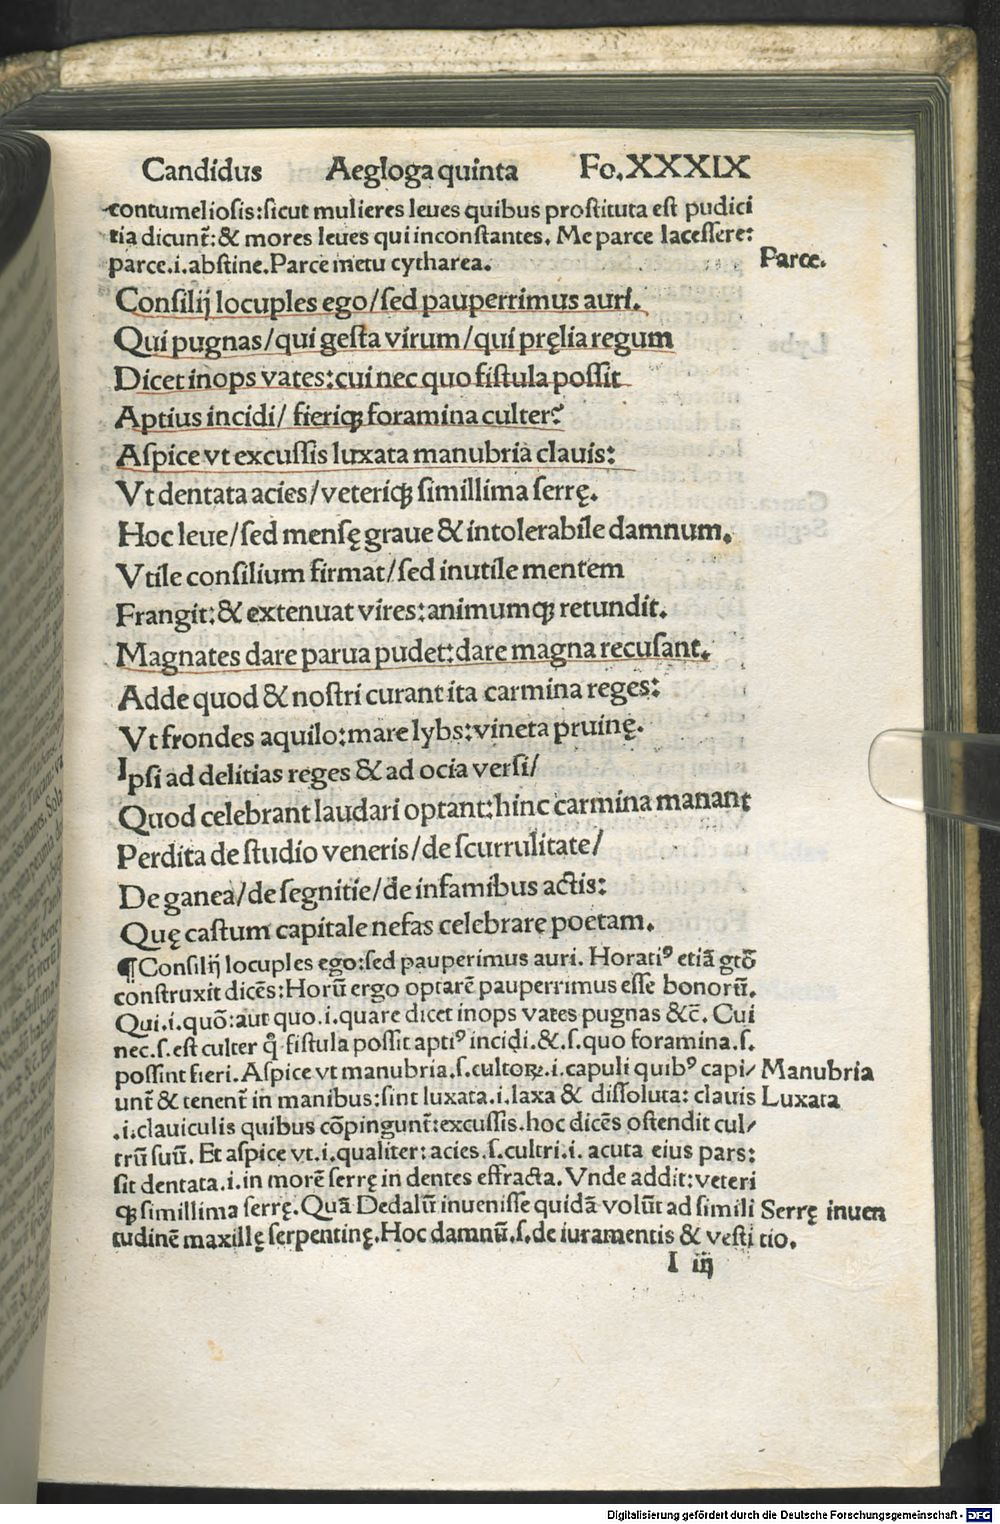 Candidus Aegloga quinta Fo.XXXIX
contumeliosis:sicut mulieres leues quibus prostituta est pudici
tia dicunt̃:& mores leues qui inconstantes. Me parce lacessere:
parce.i.abstine.Parce metu cytharea.
Parce.
Consilij locuples ego/sed pauperrimus auri.
Qui pugnas/qui gesta virum/qui pręlia regum
Dicet inops vates:cui nec quo fistula possit
Aptius incidi/ fieriqꝫ foramina culter?
Aspice vt excussis luxata manubria clauis:
Vt dentata acies/veteriqꝫ simillima serrę.
Hoc leue/sed mensę graue & intolerabile damnum.
Vtile consilium firmat/sed inutile mentem
Frangit:& extenuat vires:animumqꝫ retundit.
Magnates dare parua pudet:dare magna recusant.
Adde quod & nostri curant ita carmina reges:
Vt frondes aquilo:mare lybs:vineta pruinę.
Ipsi ad delitias reges & ad ocia versi/
Quod celebrant laudari optant:hinc carmina manant
Perdita de studio veneris/de scurrulitate/
De ganea/de segnitie/de infamibus actis:
Quę castum capitale nefas celebrare poetam.
¶Consilij locuples ego:sed pauperimus auri. Horatiꝰ etiã gtõ
construxit dicẽs:Horũ ergo optarẽ pauperrimus esse bonorũ.
Qui.i.quõ:aut quo.i.quare dicet inops vates pugnas &c̃. Cui
nec.s.est culter q̃ fistula possit aptiꝰ incidi.&.s.quo foramina.s.
possint fieri.Aspice vt manubria.s.cultoꝝ.i.capuli quibꝰ capi/ Manubria
unt̃ & tenent̃ in manibus:sint luxata.i.laxa & dissoluta: clauis Luxata
.i.clauiculis quibus cõpingunt̃:excussis.hoc dicẽs ostendit cul/
trũ suũ. Et aspice vt.i.qualiter:acies.s.cultri.i. acuta eius pars:
sit dentata.i.in morẽ serrę in dentes effracta. Vnde addit:veteri
qꝫ simillima serrę.Quã Dedalũ inuenisse quidã volũt ad simili Serrę inuen
tudinẽ maxillę serpentinę.Hoc damnũ.s.de iuramentis & vesti tio.
I iij
Digitalisierung gefördert durch die Deutsche Forschungsgemeinschaft - DFG